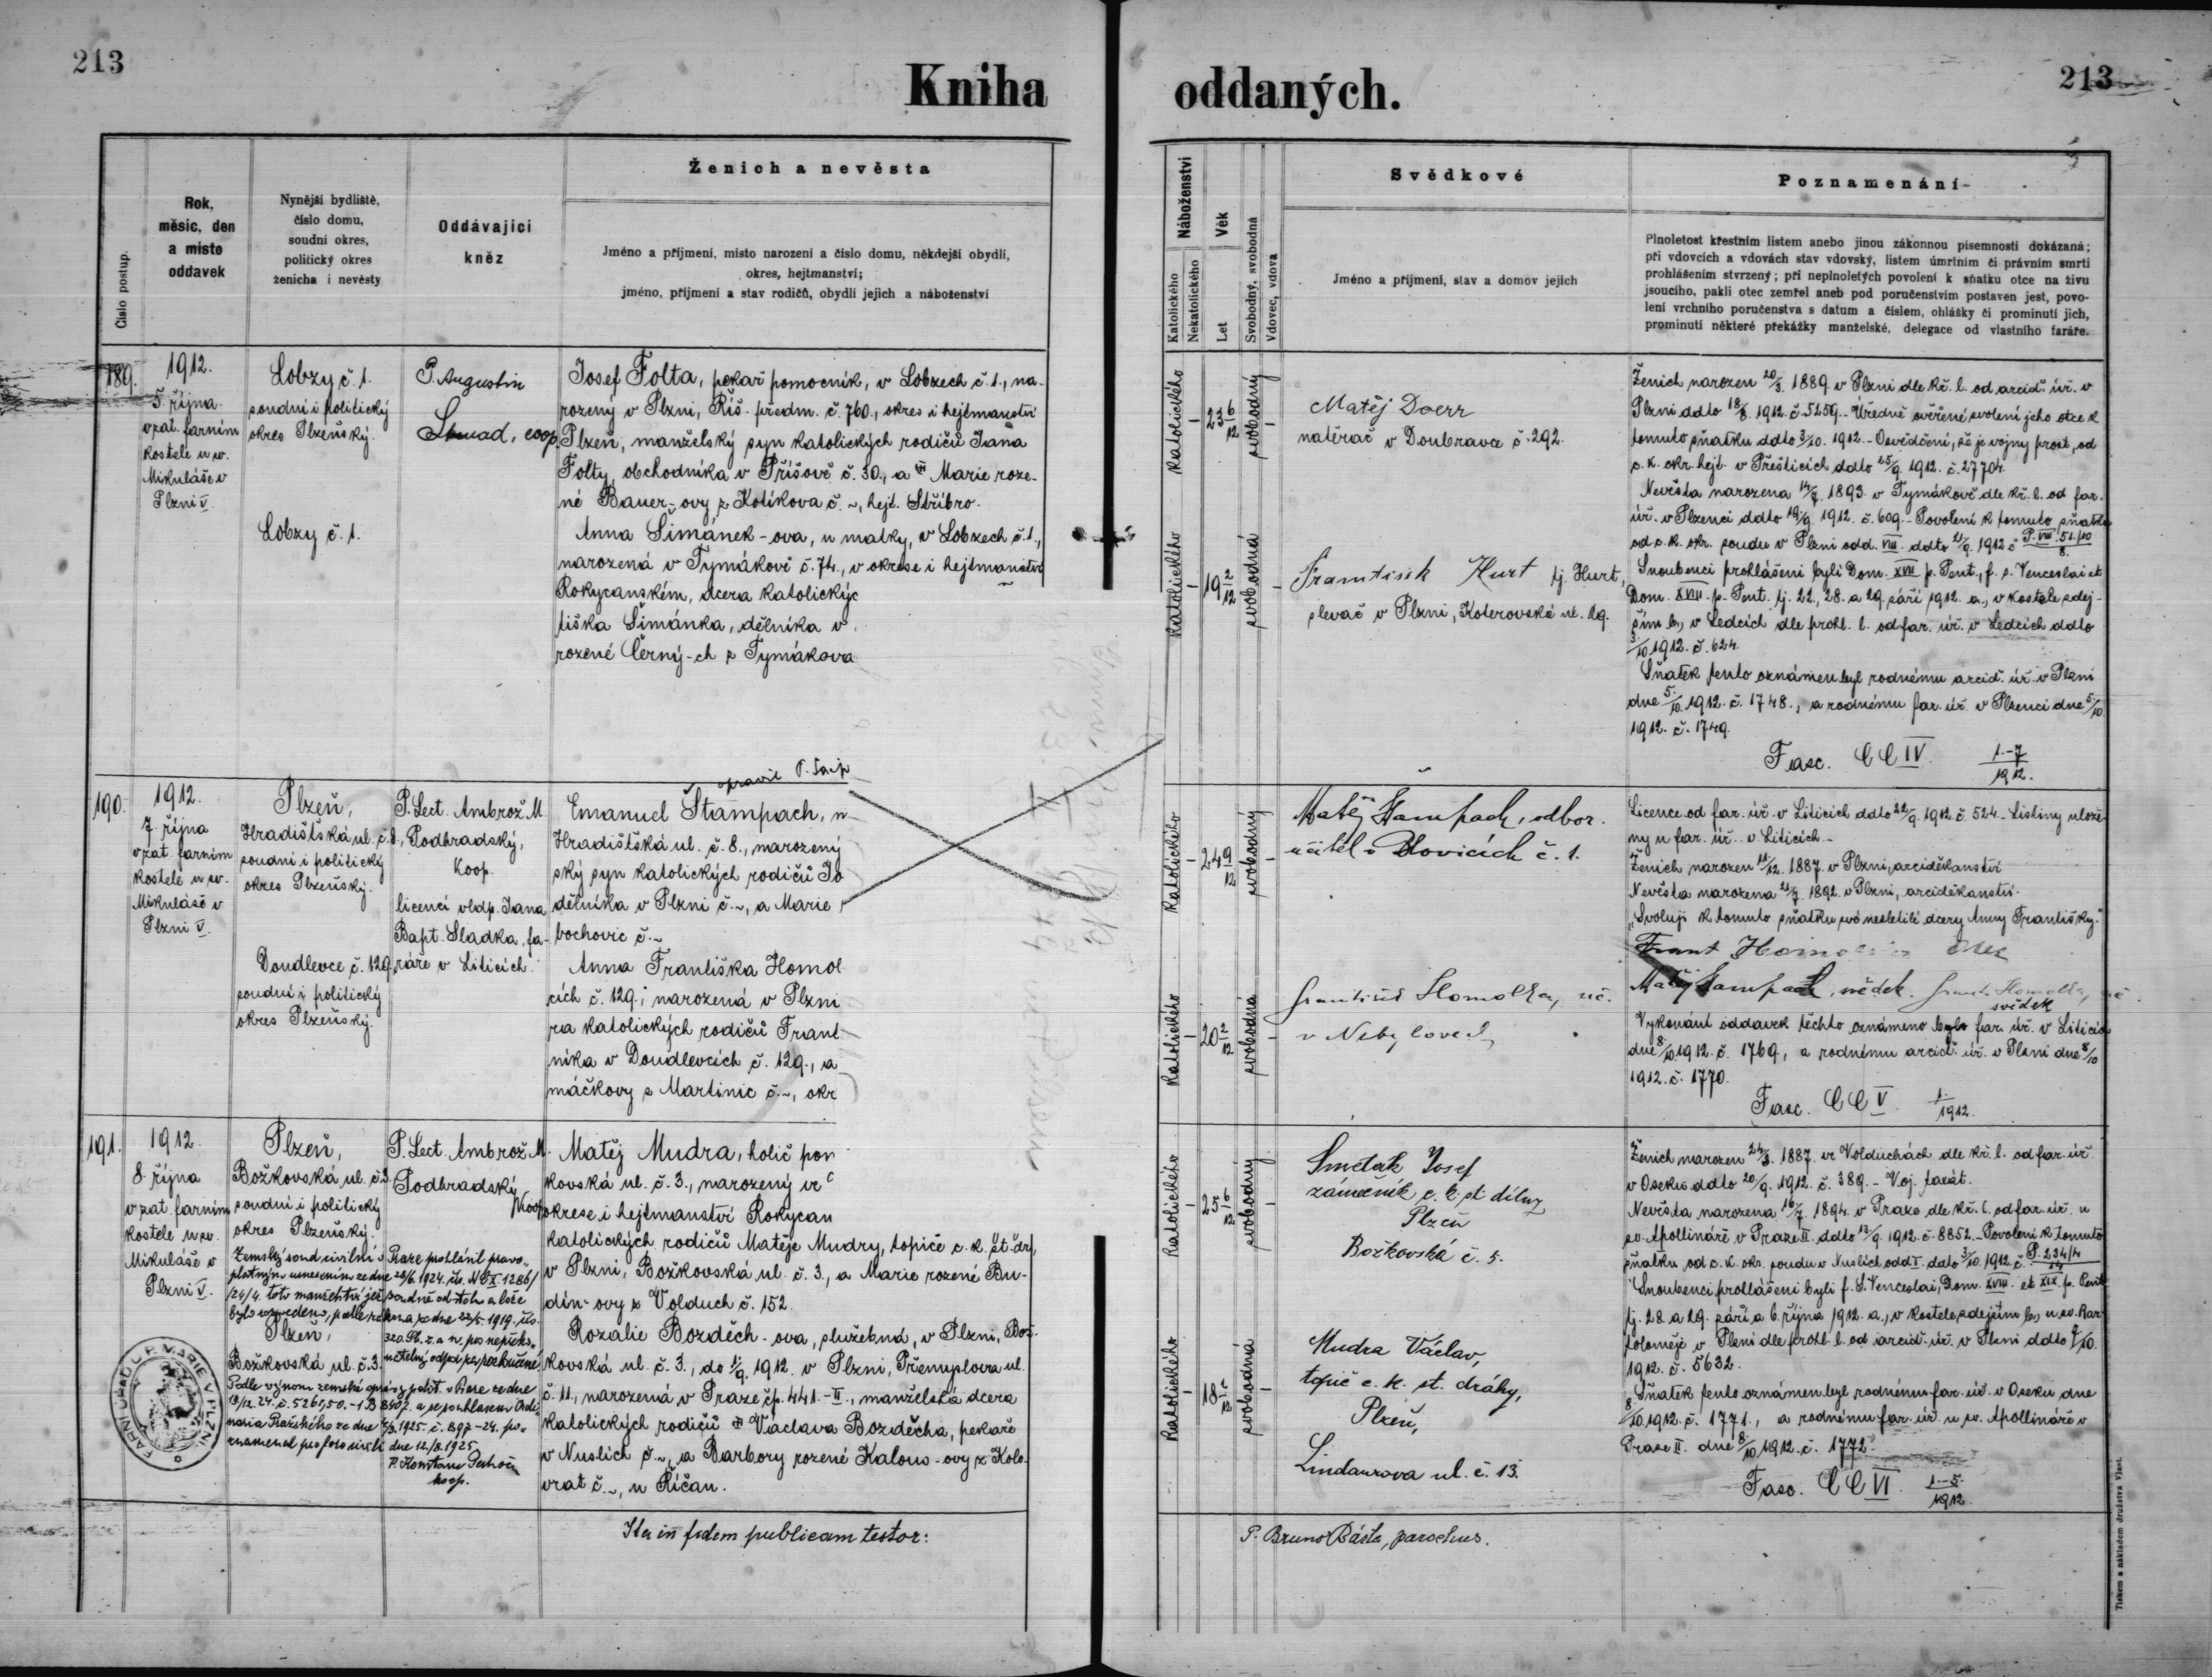 213
Kniha
oddaných.
213
Číslo postup.
Rok,
měsíc, den
a místo
oddavek
Nynější bydliště,
číslo domu,
soudní okres,
politický okres
ženicha i nevěsty
Oddávající
kněz
Ženich a nevěsta
Jméno a příjmení, místo narození a číslo domu, někdejší obydlí,
okres, hejtmanství;
jméno, příjmení a stav rodičů, obydlí jejich a náboženství
Náboženství
Katolického
Nekatolického
Věk
Let
Svobodný, svobodná
Vdovec, vdova
Svědkové
Jméno a příjmení, stav a domov jejich
Poznamenání
Plnoletost křestním listem anebo jinou zákonnou písemností dokázaná;
při vdovcích a vdovách stav vdovský, listem úmrtním či právním smrti
prohlášením stvrzený; při neplnoletých povolení k sňatku otce na živu
jsoucího, pakli otec zemřel aneb pod poručenstvím postaven jest, povo-
lení vrchního poručenstva s datum a číslem, ohlášky či prominutí jich,
prominutí některé překážky manželské, delegace od vlastního faráře.
189.
1912.
5. října
v zat. farním
kostele u sv.
Mikuláše v
Plzni V.
Lobzy č. 1.
soudní i politický
okres Plzeňský.
Lobzy č. 1.
P. Augustin
coop.
Josef Folta, pekař pomocník, v Lobzech č. 1., na-
rozený v Plzni, Říš. předm. č. 760., okres i hejtmanství
Plzeň, manželský syn katolických rodičů Jana
Folty, obchodníka v Příšově č. 30., a Marie roze-
né Bauer-ovy z Kotíkova č. ~, hejt. Stříbro.
Anna Šimánek-ova, u matky, v Lobzech č. 1.,
narozená v Tymákově č. 74., v okrese i hejtmanství
Rokycanském, dcera katolickýc
tiška Šimánka, dělníka v
rozené Černý-ch z Tymákova
Katolického
23 6/12
svobodný
Katolického
19 2/12
svobodná
Matěj Doerr
natěrač v Doubravce č. 292.
František Kurt tj. Hurt,
slevač v Plzni, Koterovská ul. 29.
Ženich narozen 20/3. 1889. v Plzni dle kř. l. od arciď. úř. v
Plzni ddto 18/8. 1912. č. 5259. Úředně ověřené svolení jeho otce k
tomuto sňatku ddto 3/10. 1912. - Osvědčení, že je vojny prost, od
c. k. okr. hejt. v Přešticích ddto 25/9. 1912. č. 27704.
Nevěsta narozena 14/7. 1893. v Tymákově dle kř. l. od far.
úř. v Plzenci ddto 19/9. 1912. č. 609. - Povolení k tomuto sňatku
od c. k. okr. soudu v Plzni odd. VIII. ddto 21/9. 1912 č. P. VIII. 51/10/8.
Snoubenci prohlášeni byli Dom. XVII p. Pent., f. s. Venceslai et
Dom. XVIII. p. Pent. tj. 22., 28. a 29. září 1912. a., v kostele zdej-
ším b., v Ledcích dle prohl. l. od far. úř. v Ledcích ddto
3/10. 1912. č. 624.
Sňatek tento oznámen byl rodnému arciď. úř. v Plzni
dne 5/10. 1912. č. 1748., a rodnému far. úř. v Plzenci dne 5/10.
1912. č. 1749.
Fasc. CC IV. 1.-7/1912.
190.
1912.
7. října
v zat. farním
kostele u sv.
Mikuláše v
Plzni V.
Plzeň,
Hradišťská ul. č. 8.,
soudní i politický
okres Plzeňský.
Doudlevce č. 129.
soudní i politický
okres Plzeňský.
P. Lect. Ambrož M.
Podhradský,
koop.
licencí vldp. Jana
Bapt. Sladka, fa-
ráře v Liticích.
Emanuel Štampach,
Hradišťská ul. č. 8., narozený
ský syn katolických rodičů Jo
dělníka v Plzni č. ~, a Marie
bochovic č. ~
Anna Františka Homol
cích č. 129., narozená v Plzni
ra katolických rodičů Frant
níka v Doudlevcích č. 129., a
máčkovy z Martinic č. ~, okr
Katolického
24 9/12
svobodný
Katolického
20 2/12
svobodná
Matěj Štampach, odbor.
učitel v Blovicích č. 1.
František Homolka, uč.
v Nebylovech
Licence od far. úř. v Liticích ddto 22/9. 1912. č. 524. - Listiny ulože-
ny u far. úř. v Liticích -
Ženich narozen 11/12. 1887. v Plzni, arciděkanství
Nevěsta narozena 21/7. 1892. v Plzni, arciděkanství.
„Svoluji k tomuto sňatku své nezletilé dcery Anny Františky."
Frant Homolka otec
Matěj Štampach, svědek. Frant. Homolka, uč.
svědek
Vykonání oddavek těchto oznámeno bylo far. úř. v Liticích
dne 8/10. 1912. č. 1769., a rodnému arciď. úř. v Plzni dne 8/10
1912. č. 1770.
Fasc. CC V. 1/1912.
191.
1912.
8. října
v zat. farním
kostele u sv.
Mikuláše v
Plzni V.
Plzeň,
Božkovská ul. č. 3.
soudní i politický
okres Plzeňský.
P. Lect. Ambrož M.
Podhradský
koop.
Zemský soud civilní v Praze prohlásil pravo-
platným usnesením ze dne 28/6. 1924. čís. Nc X. 1286/
/24/4. toto manželství
Plzeň,
Božkovská ul. č. 3.
dne 12/8. 1925.
koop.
FARNÍ ÚŘAD U P. MARIE V PLZNI
Matěj Mudra, holič pom
kovská ul. č. 3., narozený ve
okrese i hejtmanství Rokycan
katolických rodičů Matěje Mudry, topiče c. k. st. dr.,
v Plzni, Božkovská ul. č. 3., a Marie rozené Bu-
dín-ovy z Volduch č. 152.
Rozalie Bozděch-ova, služebná, v Plzni, Bož-
kovská ul. č. 3., do 1/9. 1912. v Plzni, Přemyslova ul.
č. 11., narozená v Praze čp. 441.-II., manželská dcera
katolických rodičů Václava Bozděcha, pekaře
v Nuslích č. ~, a Barbory rozené Kalous-ovy z Kolo-
vrat č. ~, u Říčan.
Katolického
25 6/12
svobodný
Katolického
18 2/12
svobodná
Smetak Josef
zámečník c. k. st. dílny
Plzeň
Božkovská č. 5.
Mudra Václav,
topič c. k. st. dráhy,
Plzeň,
Lindaurova ul. č. 13.
Ženich narozen 24/3. 1887. ve Volduchách dle kř. l. od far. úř.
v Oseku ddto 20/9. 1912. č. 389. - Voj. taxát.
Nevěsta narozena 16/7. 1894. v Praze dle kř. l. od far. úř. u
sv. Apollináře v Praze II. ddto 13/9. 1912. č. 8852. - Povolení k tomuto
sňatku od c. k. okr. soudu v Nuslích odd. I. ddto 3/10. 1912. č. P. 234/4/14
Snoubenci prohlášeni byli f. S. Venceslai, Dom. XVIII. et XIX. p. Pent.
tj. 28. a 29. září a 6. října 1912. a., v kostele zdejším b., u sv. Bar-
toloměje v Plzni dle prohl. l. od arciď. úř. v Plzni ddto 7/10.
1912. č. 5632.
Sňatek tento oznámen byl rodnému far. úř. v Oseku dne
8/10. 1912. č. 1771., a rodnému far. úř. u sv. Apollináře v
Praze II. dne 8/10. 1912. č. 1772.
Fasc. CC VI. 1.-5./1912.
Ita in fidem publicam testor:
P. Bruno Bárta, parochus.
Tiskem a nákladem družstva Vlast.